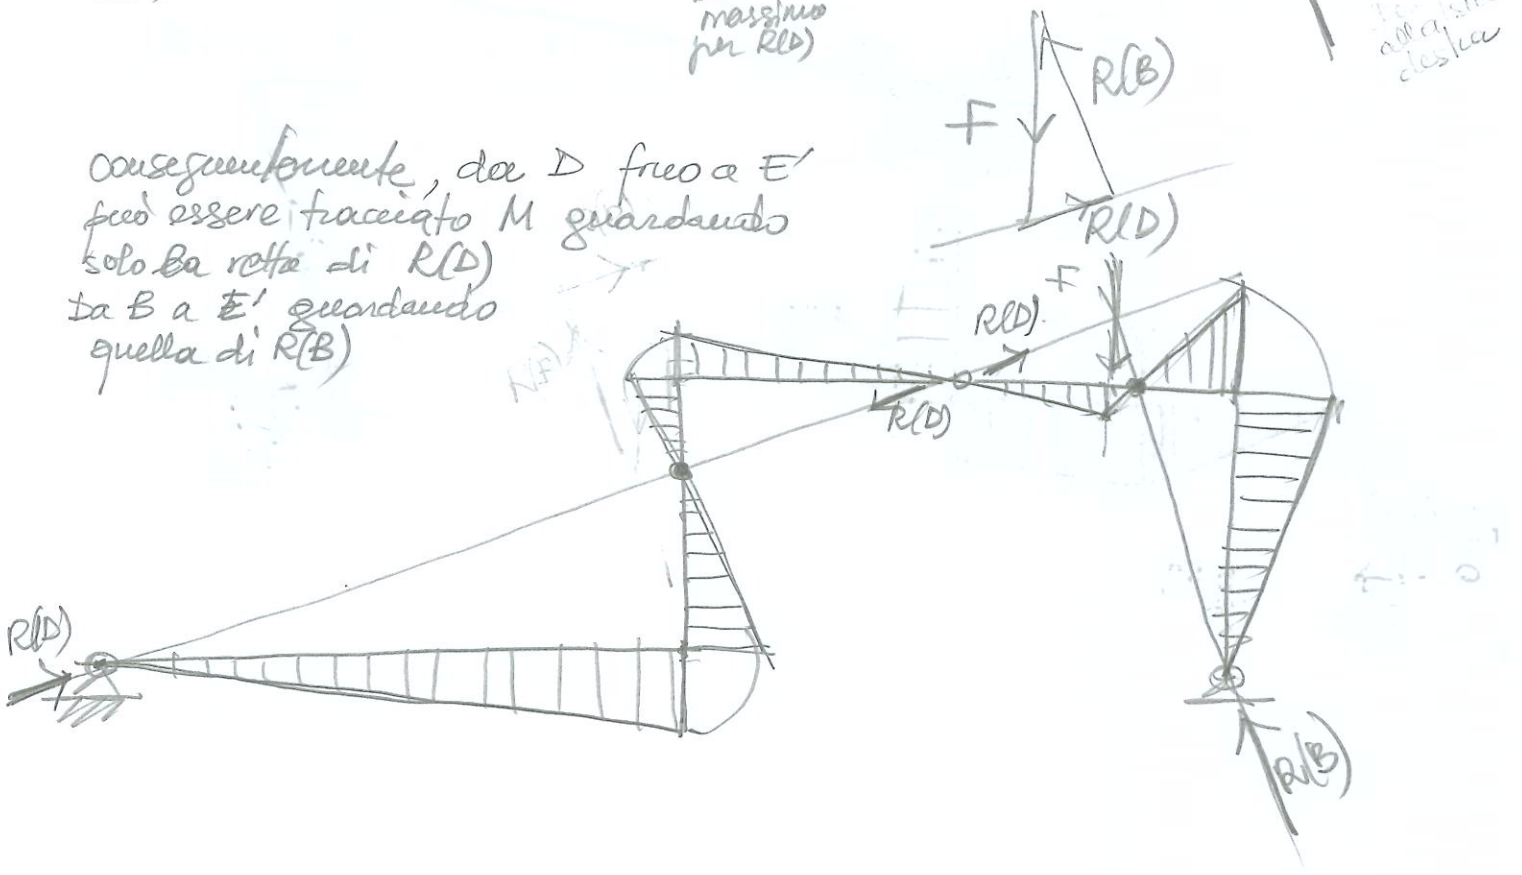 massimo
per R(D)
alla
destra
F
R(B)
R(D)
conseguentemente, da D fino a E'
può essere tracciato M guardando
solo la retta di R(D)
Da B a E' guardando
quella di R(B)
F
R(D)
R(D)
R(D)
R(B)